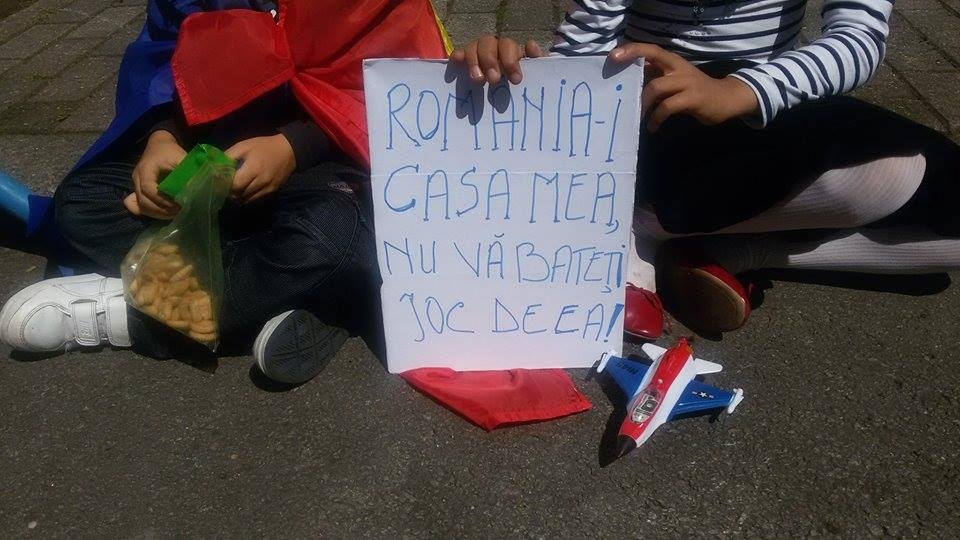 ROMANIA-i
CASA MEA,
NU VĂ BATEȚI
JOC DE EA!